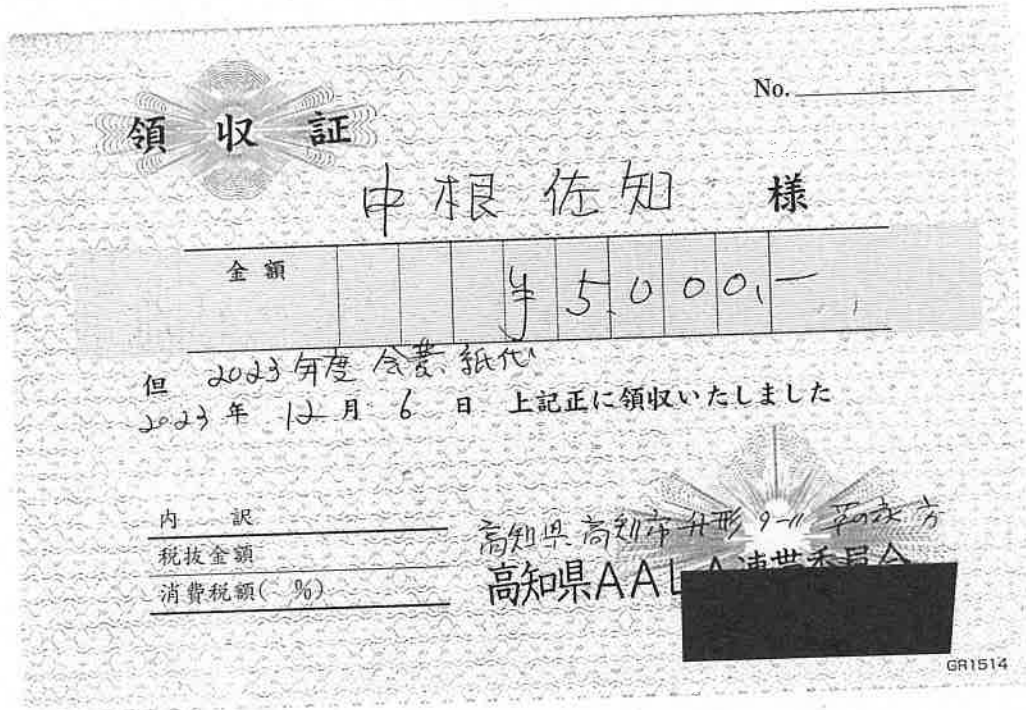 No.
領収証
中根佐知 様
金額 ¥5,000,-
但 2023年度会費、紙代
2023年 12月 6日 上記正に領収いたしました
内訳
税抜金額
消費税額( %)
高知県高知市升形9-11 平の家方
高知県AALA連帯委員会
GR1514